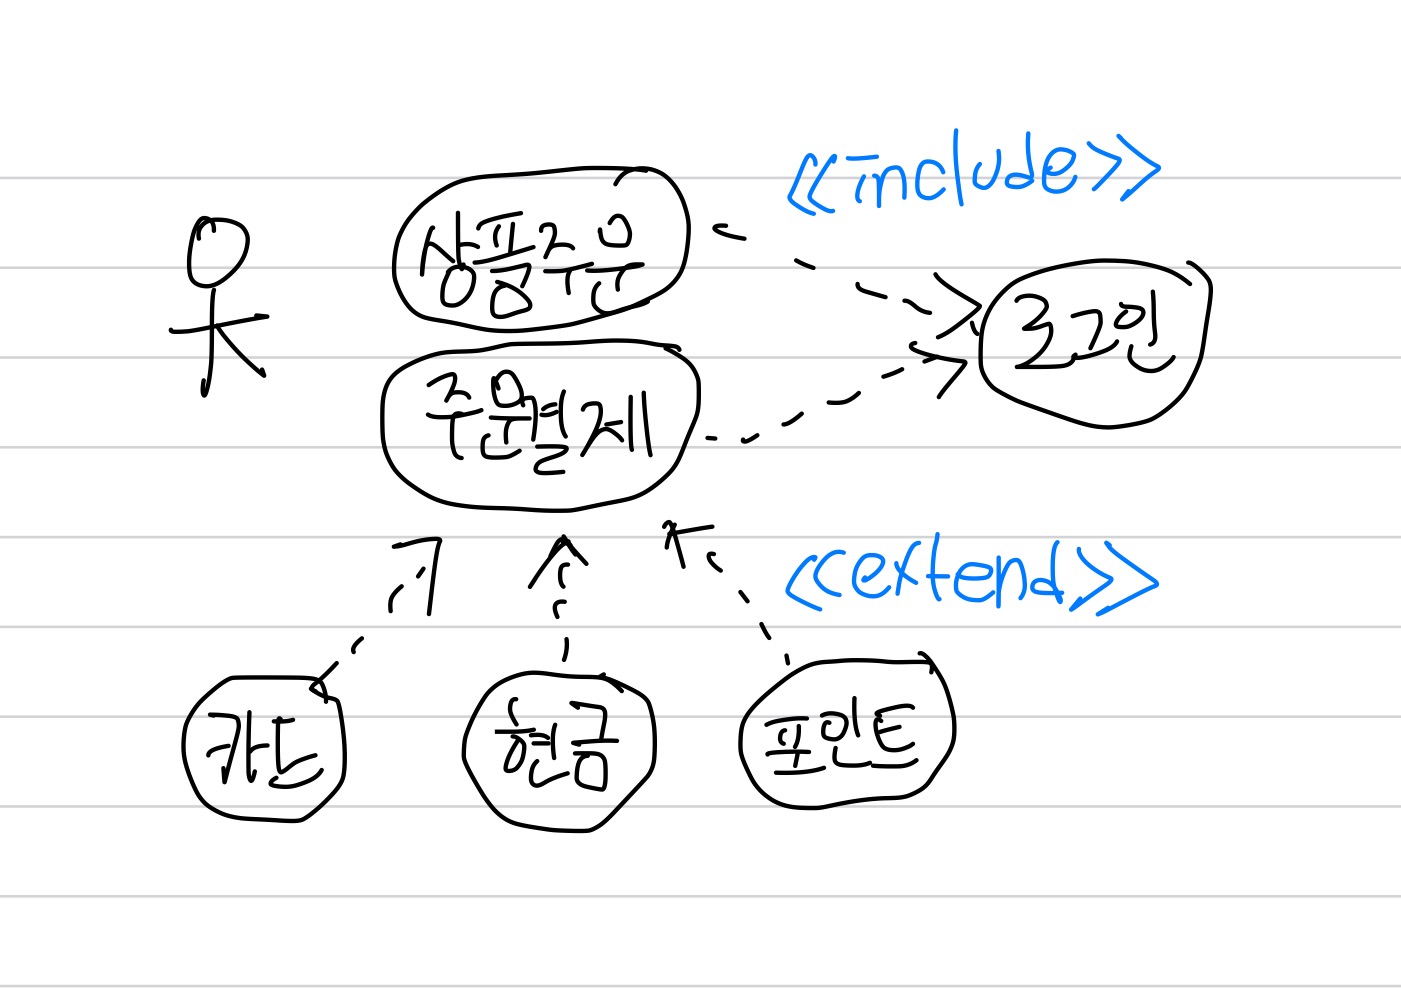 <<include>>
상품주문
로그인
주문결제
<<extend>>
카드
현금
포인트